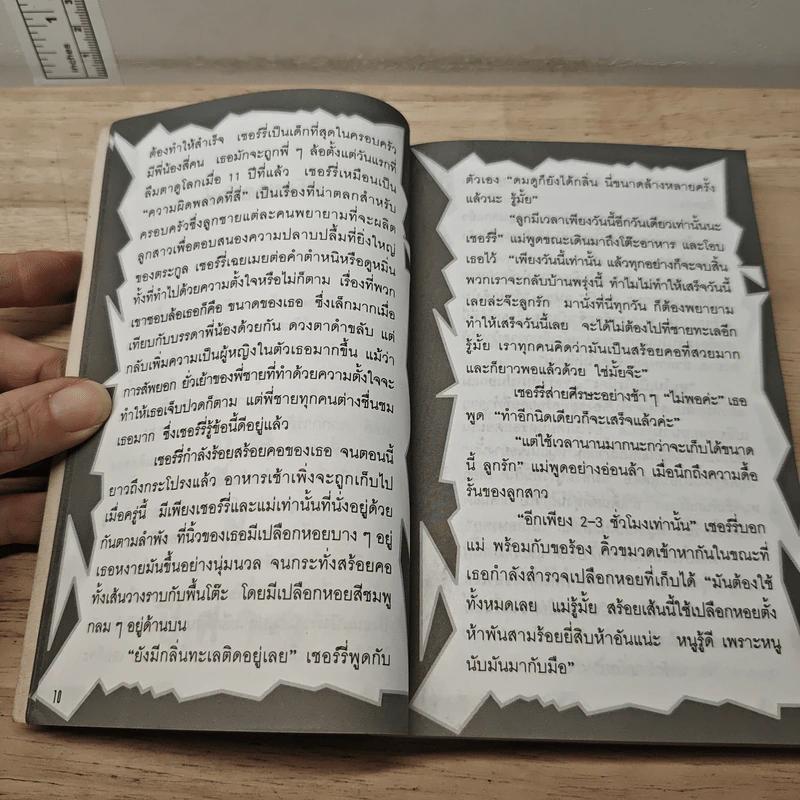 ต้องทำให้สำเร็จ เชอร์รี่เป็นเด็กที่สุดในครอบครัว
มีพี่น้องสี่คน เธอมักจะถูกพี่ ๆ ล้อตั้งแต่วันแรกที่
ลืมตาดูโลกเมื่อ 11 ปีที่แล้ว เชอร์รี่เหมือนเป็น
“ความผิดพลาดที่สี่” เป็นเรื่องที่น่าตลกสำหรับ
ครอบครัวซึ่งลูกชายแต่ละคนพยายามที่จะผลิต
ลูกสาวเพื่อตอบสนองความปลาบปลื้มที่ยิ่งใหญ่
ของตระกูล เชอร์รี่เฉยเมยต่อคำตำหนิหรือดูหมิ่น
ทั้งที่ทำไปด้วยความตั้งใจหรือไม่ก็ตาม เรื่องที่พวก
เขาชอบล้อเธอก็คือ ขนาดของเธอ ซึ่งเล็กมากเมื่อ
เทียบกับบรรดาพี่น้องด้วยกัน ดวงตาดำขลับ แต่
กลับเพิ่มความเป็นผู้หญิงในตัวเธอมากขึ้น แม้ว่า
การสัพยอก ยั่วเย้าของพี่ชายที่ทำด้วยความตั้งใจจะ
ทำให้เธอเจ็บปวดก็ตาม แต่พี่ชายทุกคนต่างชื่นชม
เธอมาก ซึ่งเชอร์รี่รู้ข้อนี้ดีอยู่แล้ว
เชอร์รี่กำลังร้อยสร้อยคอของเธอ จนตอนนี้
ยาวถึงกระโปรงแล้ว อาหารเช้าเพิ่งจะถูกเก็บไป
เมื่อครู่นี้ มีเพียงเชอร์รี่และแม่เท่านั้นที่นั่งอยู่ด้วย
กันตามลำพัง ที่นิ้วของเธอมีเปลือกหอยบาง ๆ อยู่
เธอหงายมันขึ้นอย่างนุ่มนวล จนกระทั่งสร้อยคอ
ทั้งเส้นวางราบกับพื้นโต๊ะ โดยมีเปลือกหอยสีชมพู
กลม ๆ อยู่ด้านบน
“ยังมีกลิ่นทะเลติดอยู่เลย” เชอร์รี่พูดกับ
10
ตัวเอง “ดมดูก็ยังได้กลิ่น นี่ขนาดล้างหลายครั้ง
แล้วนะ รู้มั้ย”
“ลูกมีเวลาเพียงวันนี้อีกวันเดียวเท่านั้นนะ
เชอร์รี่” แม่พูดขณะเดินมาถึงโต๊ะอาหาร และโอบ
เธอไว้ “เพียงวันนี้เท่านั้น แล้วทุกอย่างก็จะจบสิ้น
พวกเราจะกลับบ้านพรุ่งนี้ ทำไมไม่ทำให้เสร็จวันนี้
เลยล่ะจ๊ะลูกรัก มานั่งที่นี่ทุกวัน ก็ต้องพยายาม
ทำให้เสร็จวันนี้เลย จะได้ไม่ต้องไปที่ชายทะเลอีก
รู้มั้ย เราทุกคนคิดว่ามันเป็นสร้อยคอที่สวยมาก
และก็ยาวพอแล้วด้วย ใช่มั้ยจ๊ะ”
เชอร์รี่ส่ายศีรษะอย่างช้า ๆ “ไม่พอค่ะ” เธอ
พูด “ทำอีกนิดเดียวก็จะเสร็จแล้วค่ะ”
“แต่ใช้เวลานานมากนะกว่าจะเก็บได้ขนาด
นี้ ลูกรัก” แม่พูดอย่างอ่อนล้า เมื่อนึกถึงความดื้อ
รั้นของลูกสาว
“อีกเพียง 2-3 ชั่วโมงเท่านั้น” เชอร์รี่บอก
แม่ พร้อมกับขอร้อง คิ้วขมวดเข้าหากันในขณะที่
เธอกำลังสำรวจเปลือกหอยที่เก็บได้ “มันต้องใช้
ทั้งหมดเลย แม่รู้มั้ย สร้อยเส้นนี้ใช้เปลือกหอยตั้ง
ห้าพันสามร้อยยี่สิบห้าอันแน่ะ หนูรู้ดี เพราะหนู
นับมันมากับมือ”
inches
1
2
3